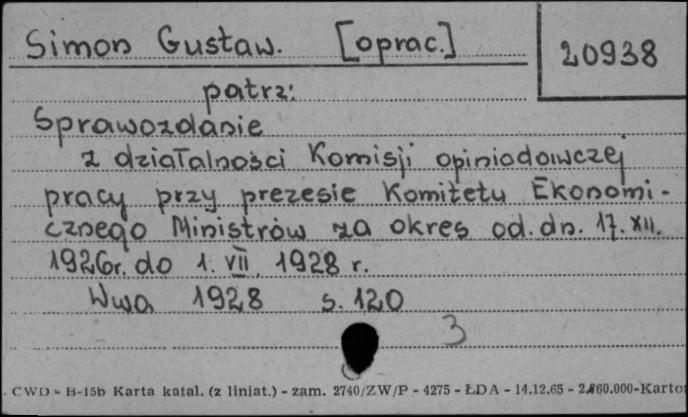 Simon Gustaw. [oprac.]
20938
patrz:
Sprawozdanie
z działalności Komisji opiniodawczej
pracy przy prezesie Komitetu Ekonomi-
cznego Ministrów za okres od. dn. 17. XII.
1926r. do 1. VII. 1928 r.
Wwa 1928 s. 120
3
CWD - B-15b Karta katal. (z liniat.) - zam. 2740/ZW/P - 4275 - ŁDA - 14.12.65 - 2.860.000-Karto